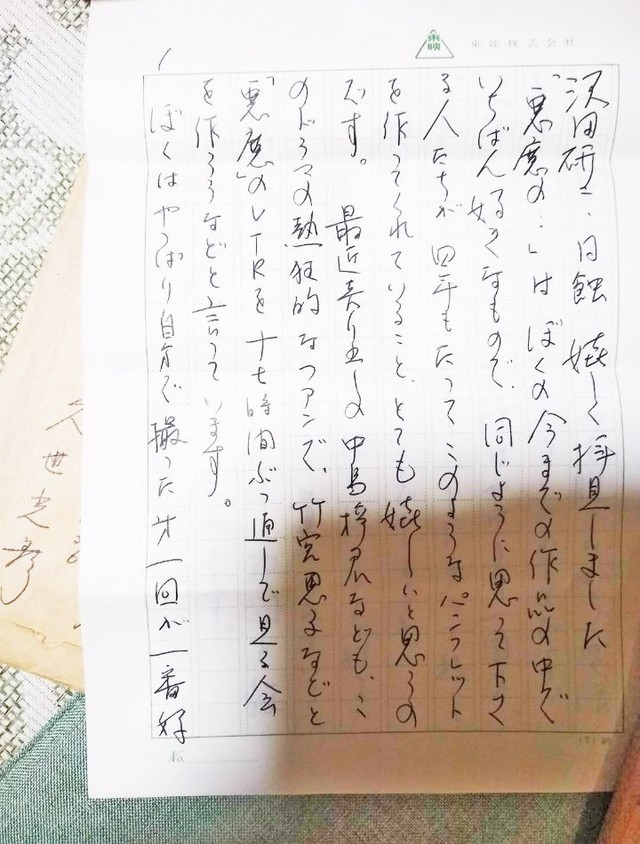 東映
東映株式会社
1
沢田研二、日蝕 嬉しく拝見しました
「悪魔の…」は ぼくの今までの作品の中で
いちばん好きなもので、同じように思って下さ
る人たちが四年もたってこのようなパンフレット
を作ってくれていること、とても嬉しいと思うの
です。 最近売り出しの中島梓君なども、こ
のドラマの熱狂的なファンで、竹宮恵子などと
「悪魔」のVTRを十七時間ぶっ通しで見る会
を作ろうなどと言っています。
ぼくはやっぱり自分で撮った第一回が一番好
No.
久世光彦